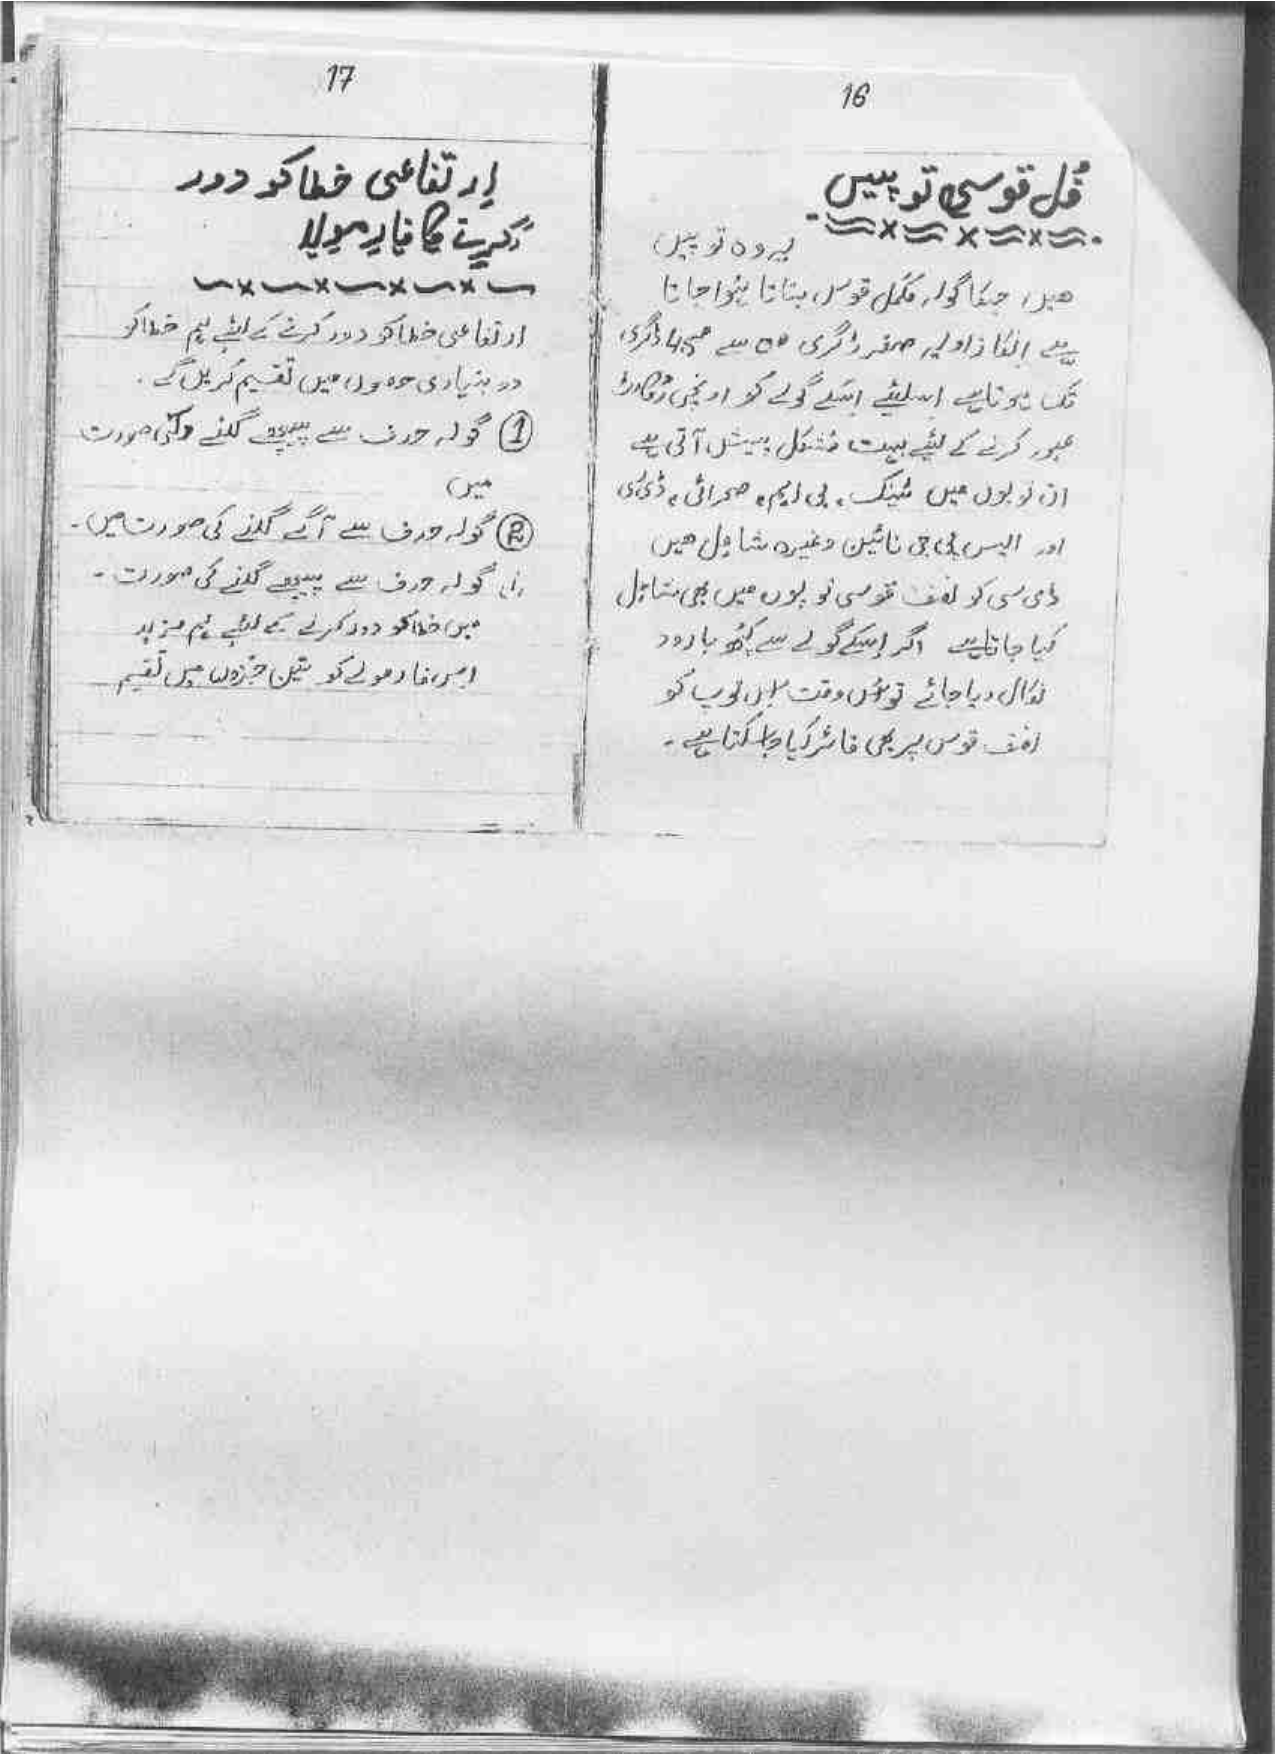 16
فُل قوسی توپیں
یہ وہ توپیں
ھیں جنکا گولہ مکمل قوس بناتا ہُوا جاتا
ہے انکا زاویہ صفر ڈگری 00 سے 45 ڈگری
تک ہوتا ہے اسلیئے اسکے گولے کو اونچی رُکاوٹ
عبور کرنے کے لیئے بہت مُشکل پیش آتی ہے
ان توپوں میں ٹینک، بی ایم، صحرائی، ڈی سی
اور ایس پی جی نائین وغیرہ شامل ھیں
ڈی سی کو نصف قوسی توپوں میں بھی شامل
کیا جاتا ہے اگر اسکے گولے سے کچھ بارود
نکال دیا جائے تو اس وقت اس توپ کو
نصف قوس پر بھی فائر کیا جا سکتا ہے۔
17
اِرتفاعی خطا کو دور
کرنے کا فارمولا
ارتفاعی خطا کو دور کرنے کے لیئے ہم خطا کو
دو بنیادی حصوں میں تقسیم کریں گے۔
① گولہ حدف سے پیچھے گلنے کی صورت
میں
② گولہ حدف سے آگے گلنے کی صورت میں۔
گولہ حدف سے پیچھے گلنے کی صورت۔
میں خطا کو دور کرنے کے لیئے ہم مزید
اس فارمولے کو تین حُزوں میں تقسیم